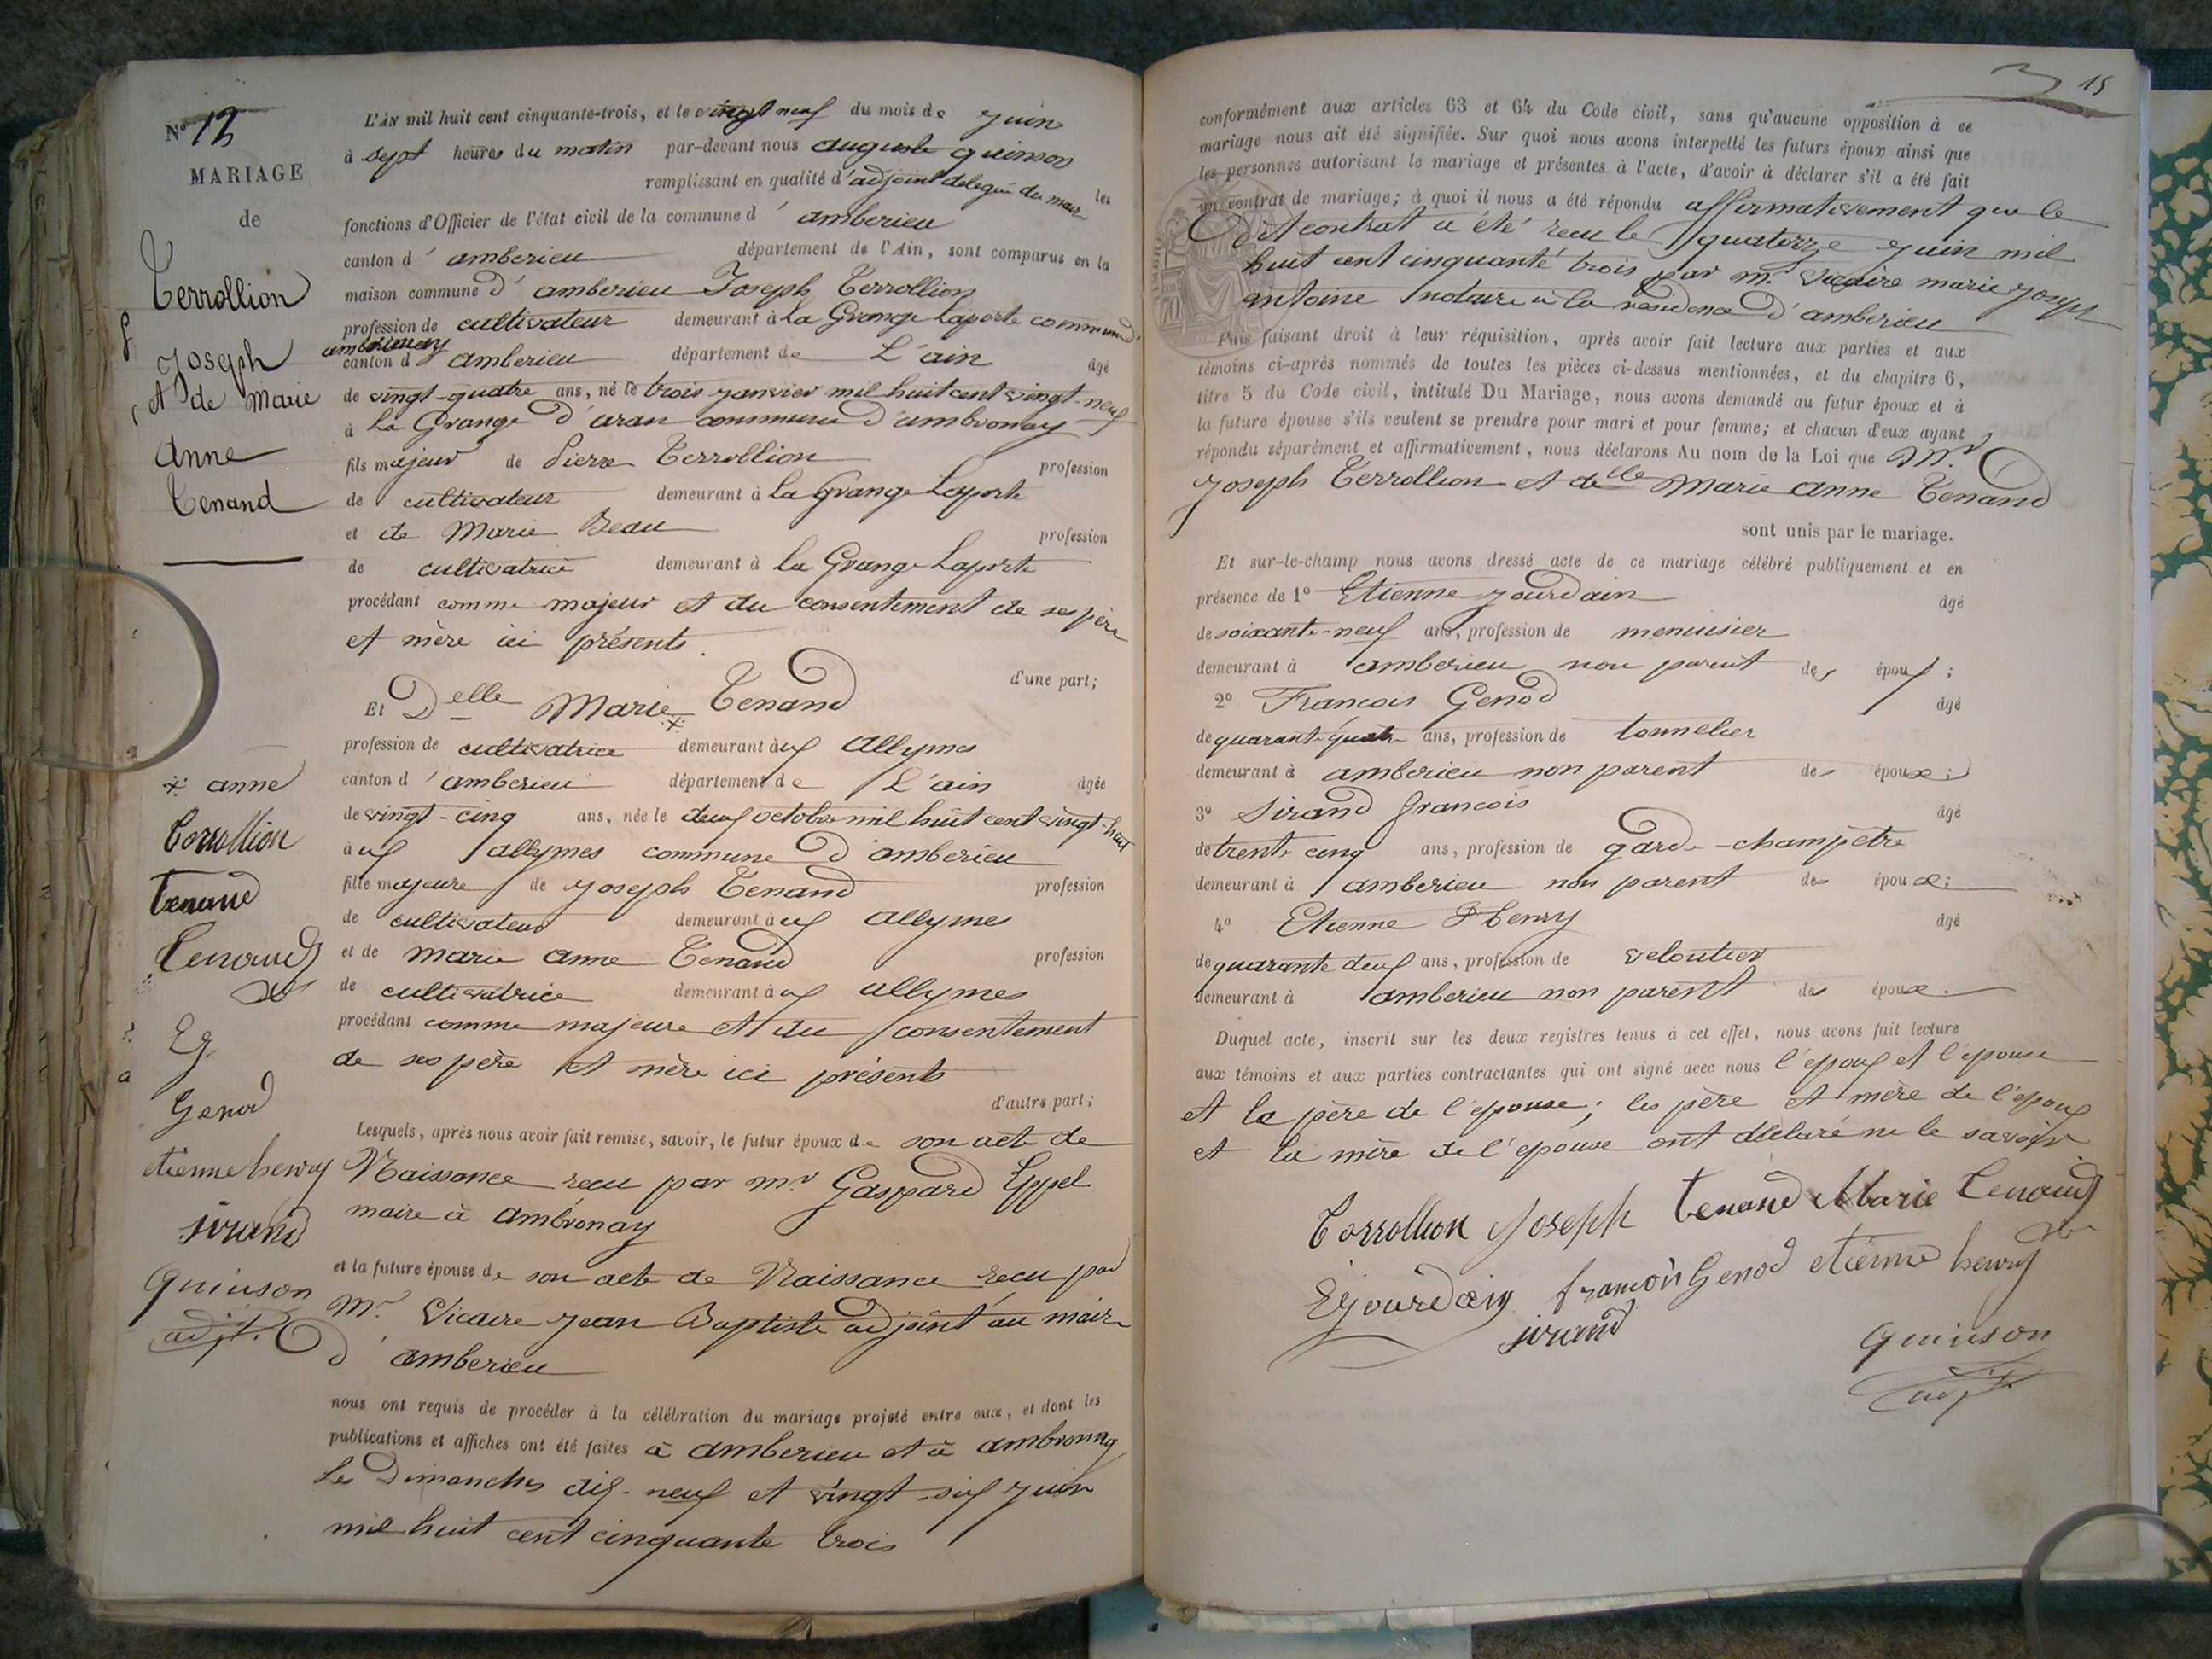 N° 13
MARIAGE
de
Terrollion
Joseph
et de Marie
Anne
Tenand
L'AN mil huit cent cinquante-trois, et le vingt neuf du mois de juin
à sept heures du matin par-devant nous auguste quinson
remplissant en qualité d'adjoint délégué du maire les
fonctions d'Officier de l'état civil de la commune d'amberieu
canton d'amberieu département de l'Ain, sont comparus en la
maison commune d'amberieu Joseph Terrollion
profession de cultivateur demeurant à La Grange Laporte commune d'
ambronay
canton d'amberieu département de L'ain âgé
de vingt-quatre ans, né le trois janvier mil huit cent vingt-neuf
à La Grange d'aran commune d'ambronay
fils majeur de Pierre Terrollion profession
de cultivateur demeurant à la Grange Laporte
et de Marie Beau profession
de cultivatrice demeurant à la Grange Laporte
procédant comme majeur et du consentement de ses père
et mère ici présents.
d'une part;
Et Delle Marie Tenand
profession de cultivatrice demeurant aux allymes
canton d'amberieu département de L'ain âgée
de vingt-cinq ans, née le deux octobre mil huit cent vingt-huit
aux allymes commune d'amberieu
fille majeure de joseph Tenand profession
de cultivateur demeurant aux allymes
et de marie anne Tenand profession
de cultivatrice demeurant aux allymes
procédant comme majeure et du consentement
de ses père et mère ici présents
d'autre part;
Lesquels, après nous avoir fait remise, savoir, le futur époux de son acte de
Naissance recu par mr Gaspard Eppel
maire à ambronay
et la future épouse de son acte de Naissance recu par
Mr Vicaire jean Baptiste adjoint au maire
d'amberieu
nous ont requis de procéder à la célébration du mariage projeté entre eux, et dont les
publications et affiches ont été faites à amberieu et à ambronay
les Dimanches dix-neuf et vingt-six juin
mil huit cent cinquante trois
anne
Terrollion
Tenand
Tenand
Ej
Genod
etienne henry
sirand
quinson
adjt.
15
conformément aux articles 63 et 64 du Code civil, sans qu'aucune opposition à ce
mariage nous ait été signifiée. Sur quoi nous avons interpellé les futurs époux ainsi que
les personnes autorisant le mariage et présentes à l'acte, d'avoir à déclarer s'il a été fait
un contrat de mariage; à quoi il nous a été répondu affirmativement que le
dit contrat a été recu le quatorze juin mil
huit cent cinquante trois par mr. Vicaire marie joseph
antoine notaire à la residence d'amberieu
Puis faisant droit à leur réquisition, après avoir fait lecture aux parties et aux
témoins ci-après nommés de toutes les pièces ci-dessus mentionnées, et du chapitre 6,
titre 5 du Code civil, intitulé Du Mariage, nous avons demandé au futur époux et à
la future épouse s'ils veulent se prendre pour mari et pour femme; et chacun d'eux ayant
répondu séparément et affirmativement, nous déclarons Au nom de la Loi que Mr.
joseph Terrollion et delle marie anne Tenand
sont unis par le mariage.
Et sur-le-champ nous avons dressé acte de ce mariage célébré publiquement et en
présence de 1° Etienne jourdain âgé
de soixante-neuf ans, profession de menuisier
demeurant à amberieu non parent des époux;
2° Francois Genod âgé
de quarante quatre ans, profession de tonnelier
demeurant à amberieu non parent des époux;
3° Sirand francois âgé
de trente cinq ans, profession de garde-champêtre
demeurant à amberieu non parent des époux;
4° Etienne Henry âgé
de quarante deux ans, profession de veloutier
demeurant à amberieu non parent des époux.
Duquel acte, inscrit sur les deux registres tenus à cet effet, nous avons fait lecture
aux témoins et aux parties contractantes qui ont signé avec nous l'epoux et l'epouse
et le père de l'epouse; les père et mère de l'epoux
et la mère de l'epouse ont déclaré ne le savoir
Torrollion Joseph Tenand Marie Tenand
Ejourdain francois Genod etienne henry
sirand
quinson
adjt.